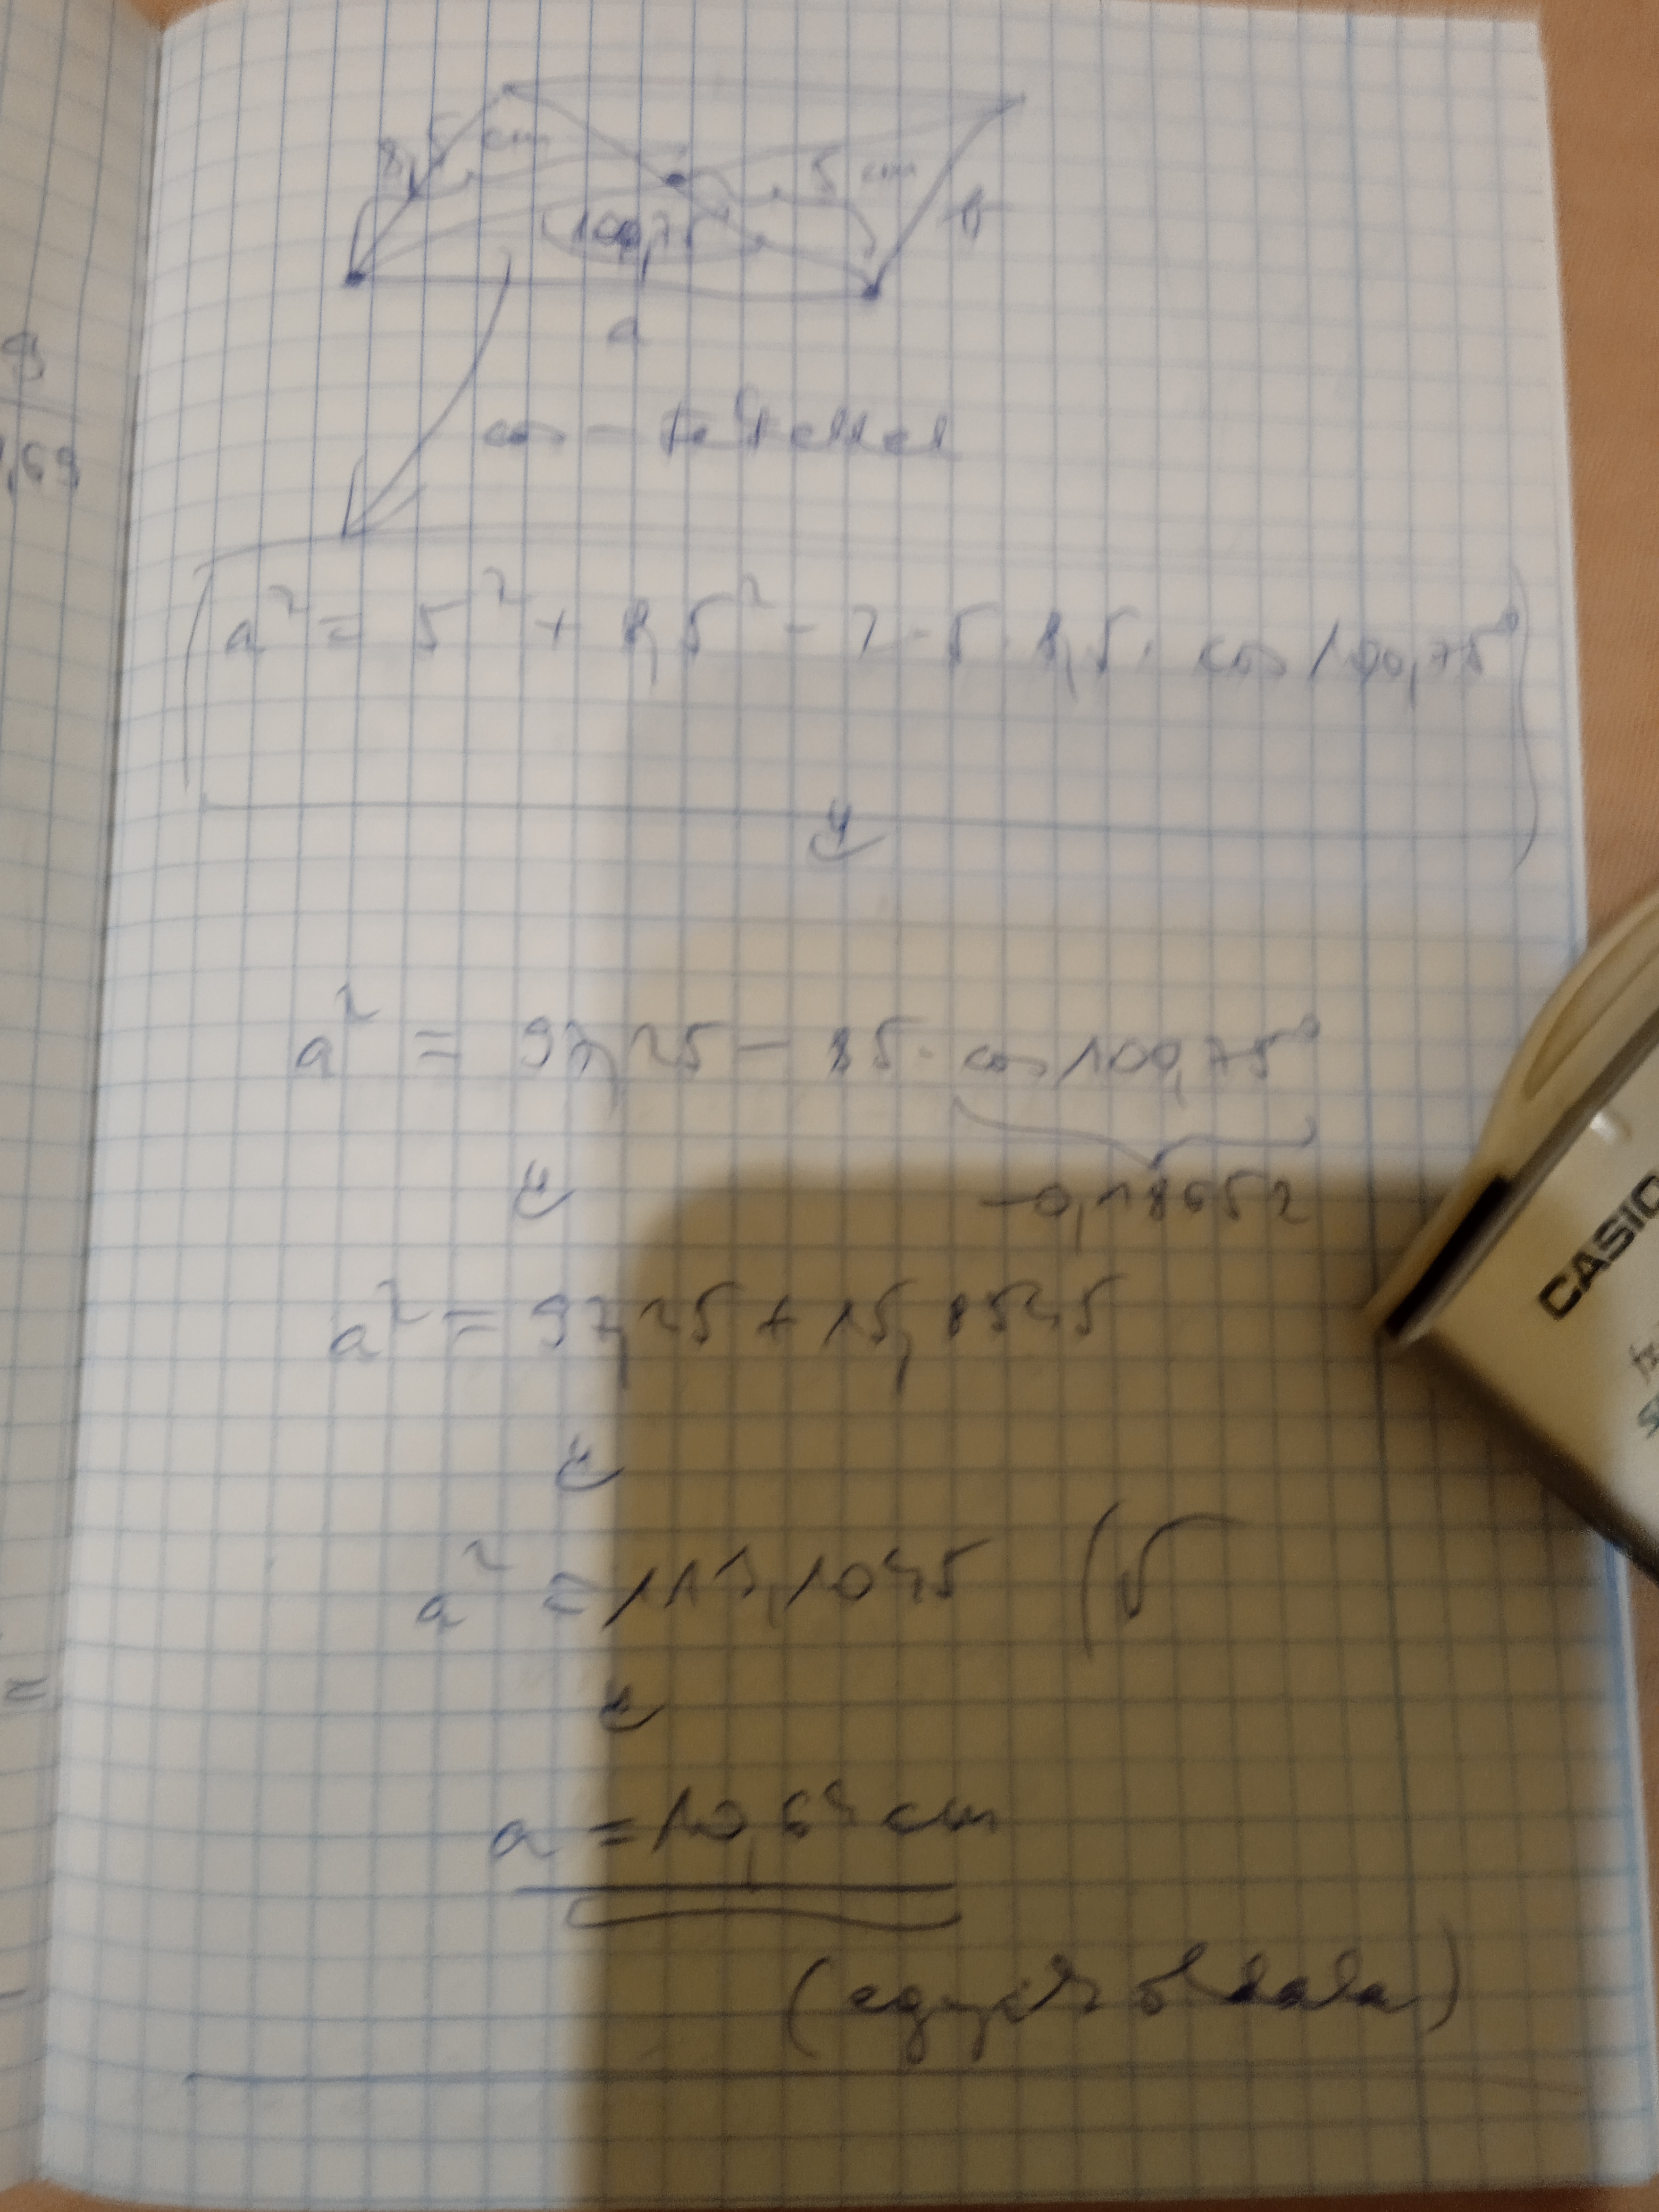 8,5 cm
5 cm
100,75°
b
a
cos-tétellel
a² = 5² + 8,5² - 2·5·8,5· cos 100,75°
a² = 97,25 - 85· cos 100,75°
-0,18652
a² = 97,25 + 15,8545
a² = 113,1045 (√
a = 10,64 cm
(egyik oldala)
CASIO